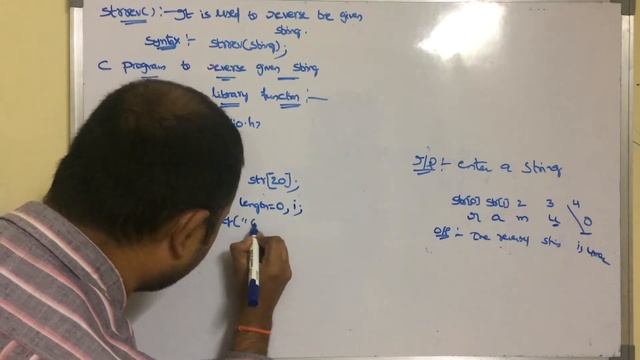 strrev() :- It is used to reverse be given
string.
Syntax :- strrev(string);
C program to reverse given string
Library function :-
io.h>
str[20];
length=0, i;
I/P :- enter a string
str[0] str[1] 2 3 4
r a m u 0
O/P :- The reverse string is umar